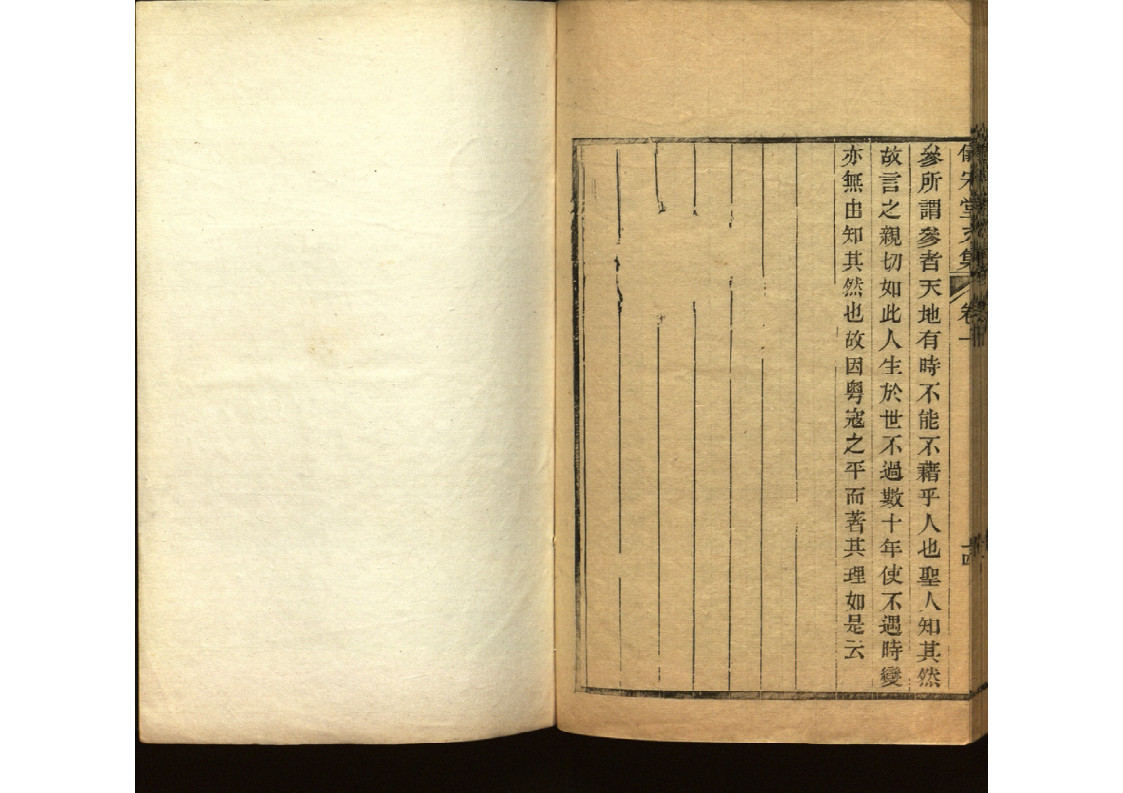 儀宋堂文集 卷一 十四
參所謂參者天地有時不能不藉乎人也聖人知其然
故言之親切如此人生於世不過數十年使不遇時變
亦無由知其然也故因粵寇之平而著其理如是云